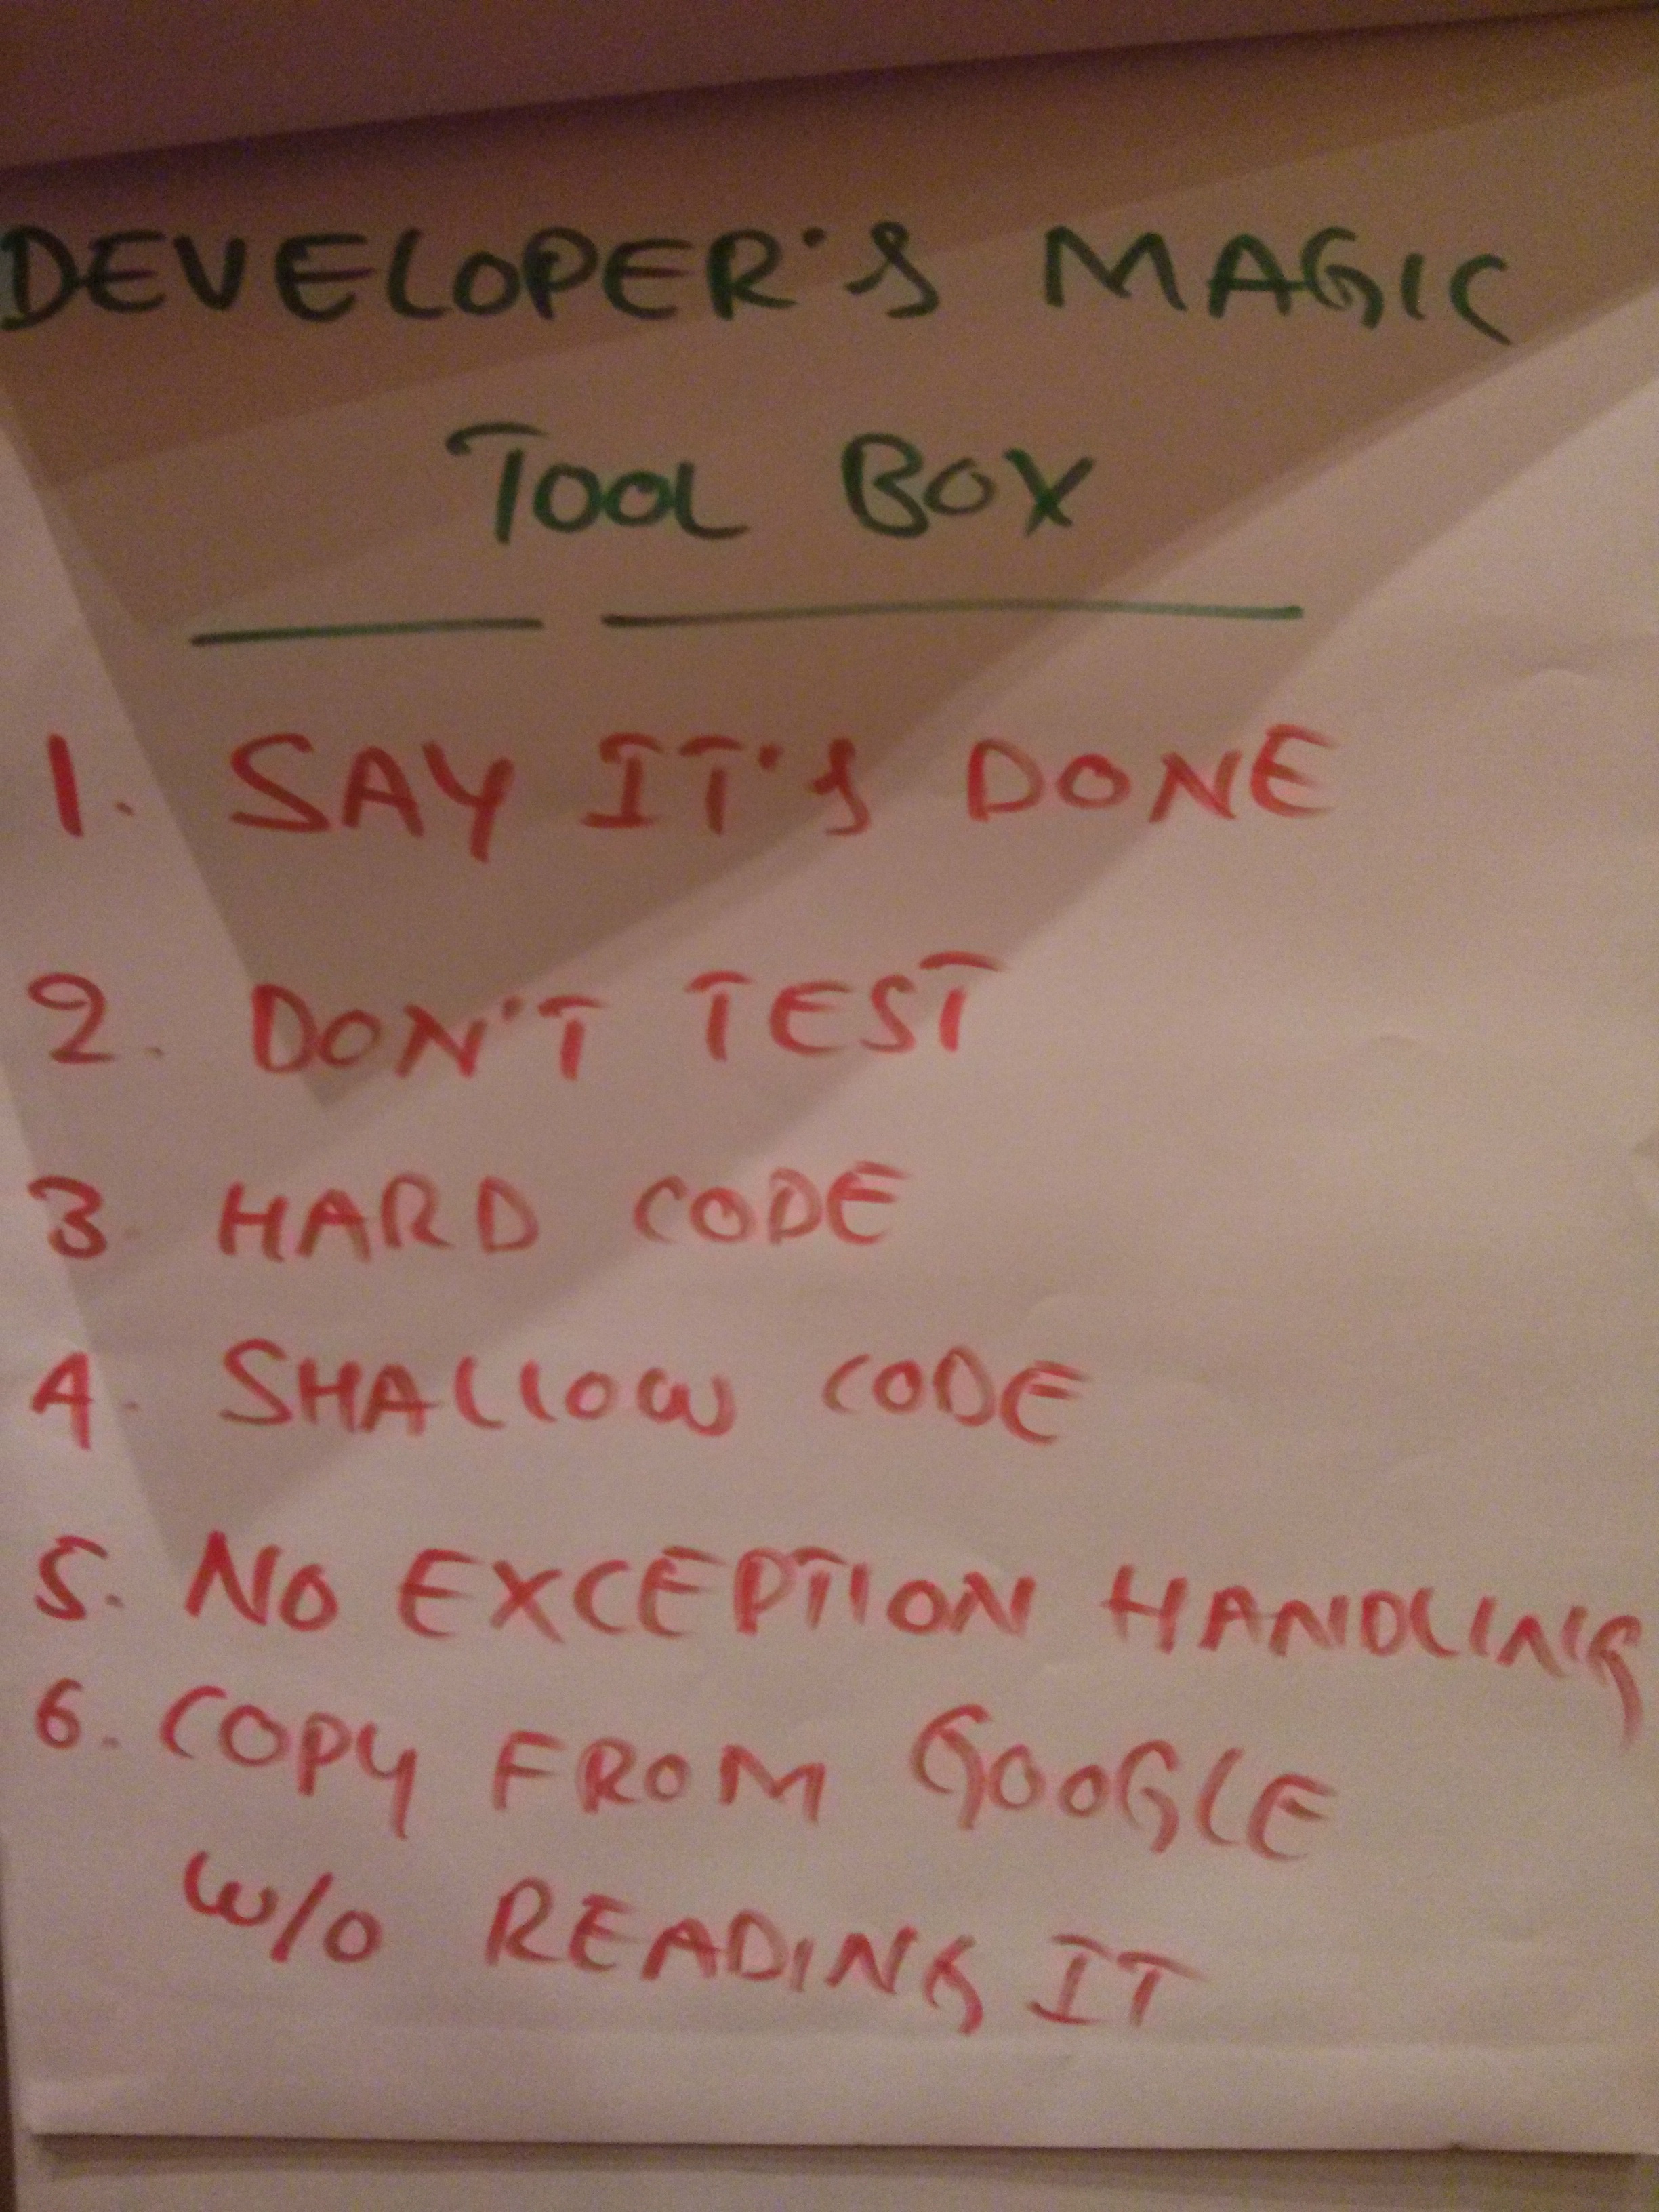 DEVELOPER'S MAGIC
TOOL BOX
1. SAY IT'S DONE
2. DON'T TEST
3. HARD CODE
4. SHALLOW CODE
5. NO EXCEPTION HANDLING
6. COPY FROM GOOGLE
W/O READING IT